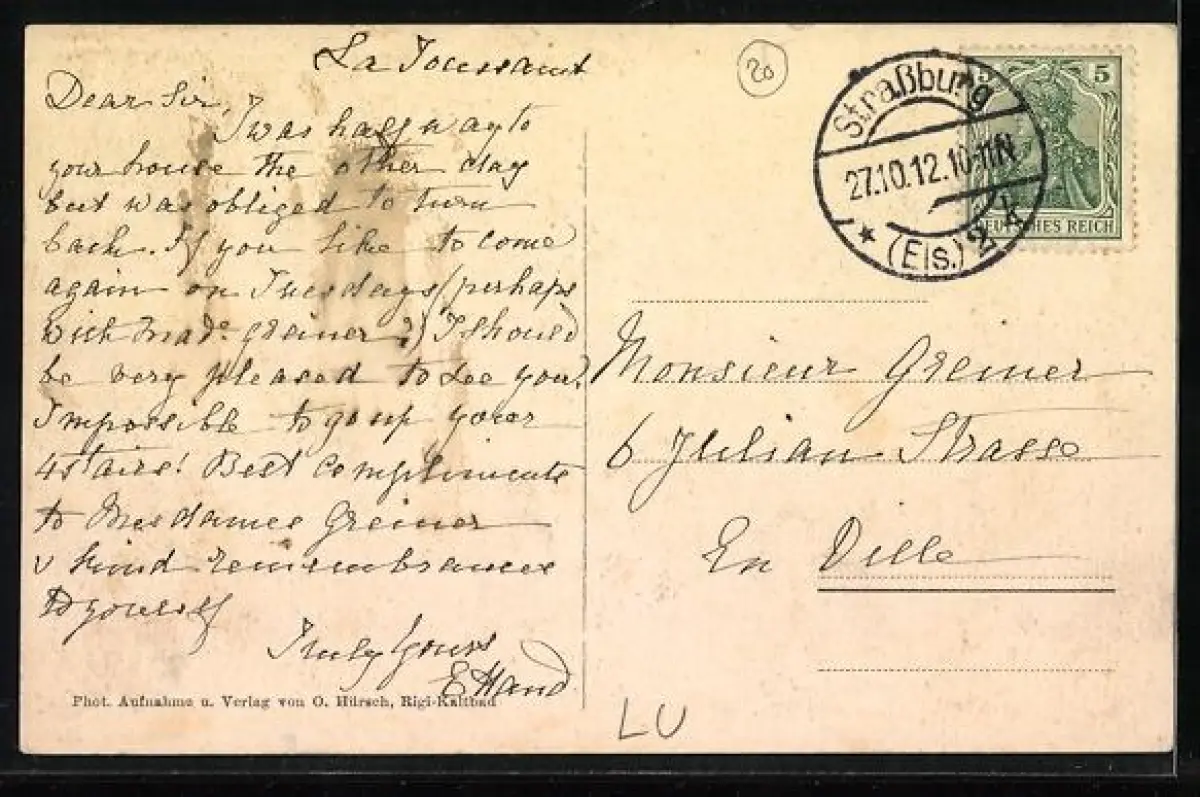 La Toussaint
Dear Sir,
I was half way to
your house the other day
but was obliged to turn
back. If you like to come
again on Tuesdays (perhaps
with Made. Greiner?) I should
be very pleased to see you.
Impossible to go up your
4 stairs! Best compliments
to Mesdames Greiner
& kind remembrances
to yourself
Truly Yours
E Hand
Phot. Aufnahme u. Verlag von O. Hürsch, Rigi-Kaltbad
20
Straßburg
27.10.12.10-11N
* (Els.) 2 k
5 5
DEUTSCHES REICH
Monsieur Greiner
6 Julian Strasse
En Ville
LU